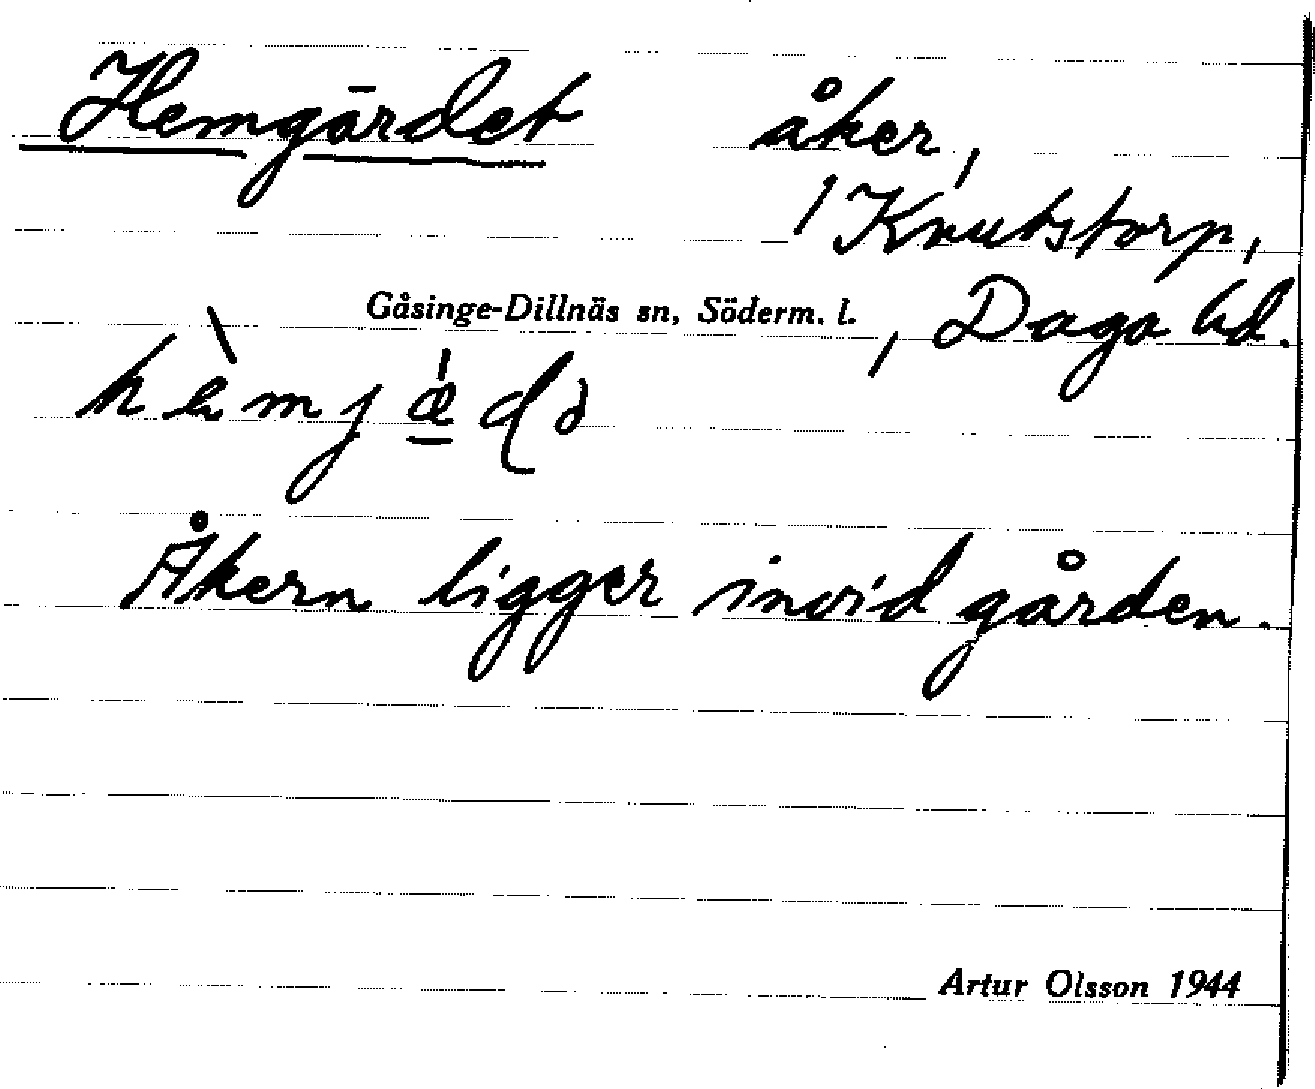 Hemgärdet åker,
1 Knutstorp,
Gåsinge-Dillnäs sn, Söderm. l., Daga hd.
Åkern ligger invid gården.
Artur Olsson 1944